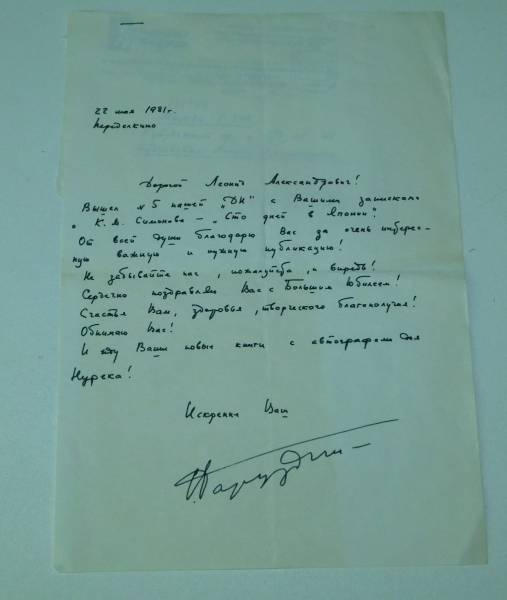 22 мая 1981г.
Переделкино
Дорогой Леонид Александрович!
Вышел №5 нашей "ДН" с Вашими записками
о К. М. Симонове – "Сто дней в Японии"!
От всей души благодарю Вас за очень интерес-
ную важную и нужную публикацию!
Не забывайте нас, пожалуйста, и впредь!
Сердечно поздравляю Вас с Большим Юбилеем!
Счастья Вам, здоровья, творческого благополучия!
Обнимаю Вас!
И жду Ваши новые книги с автографами для
Нурека!
Искренне Ваш